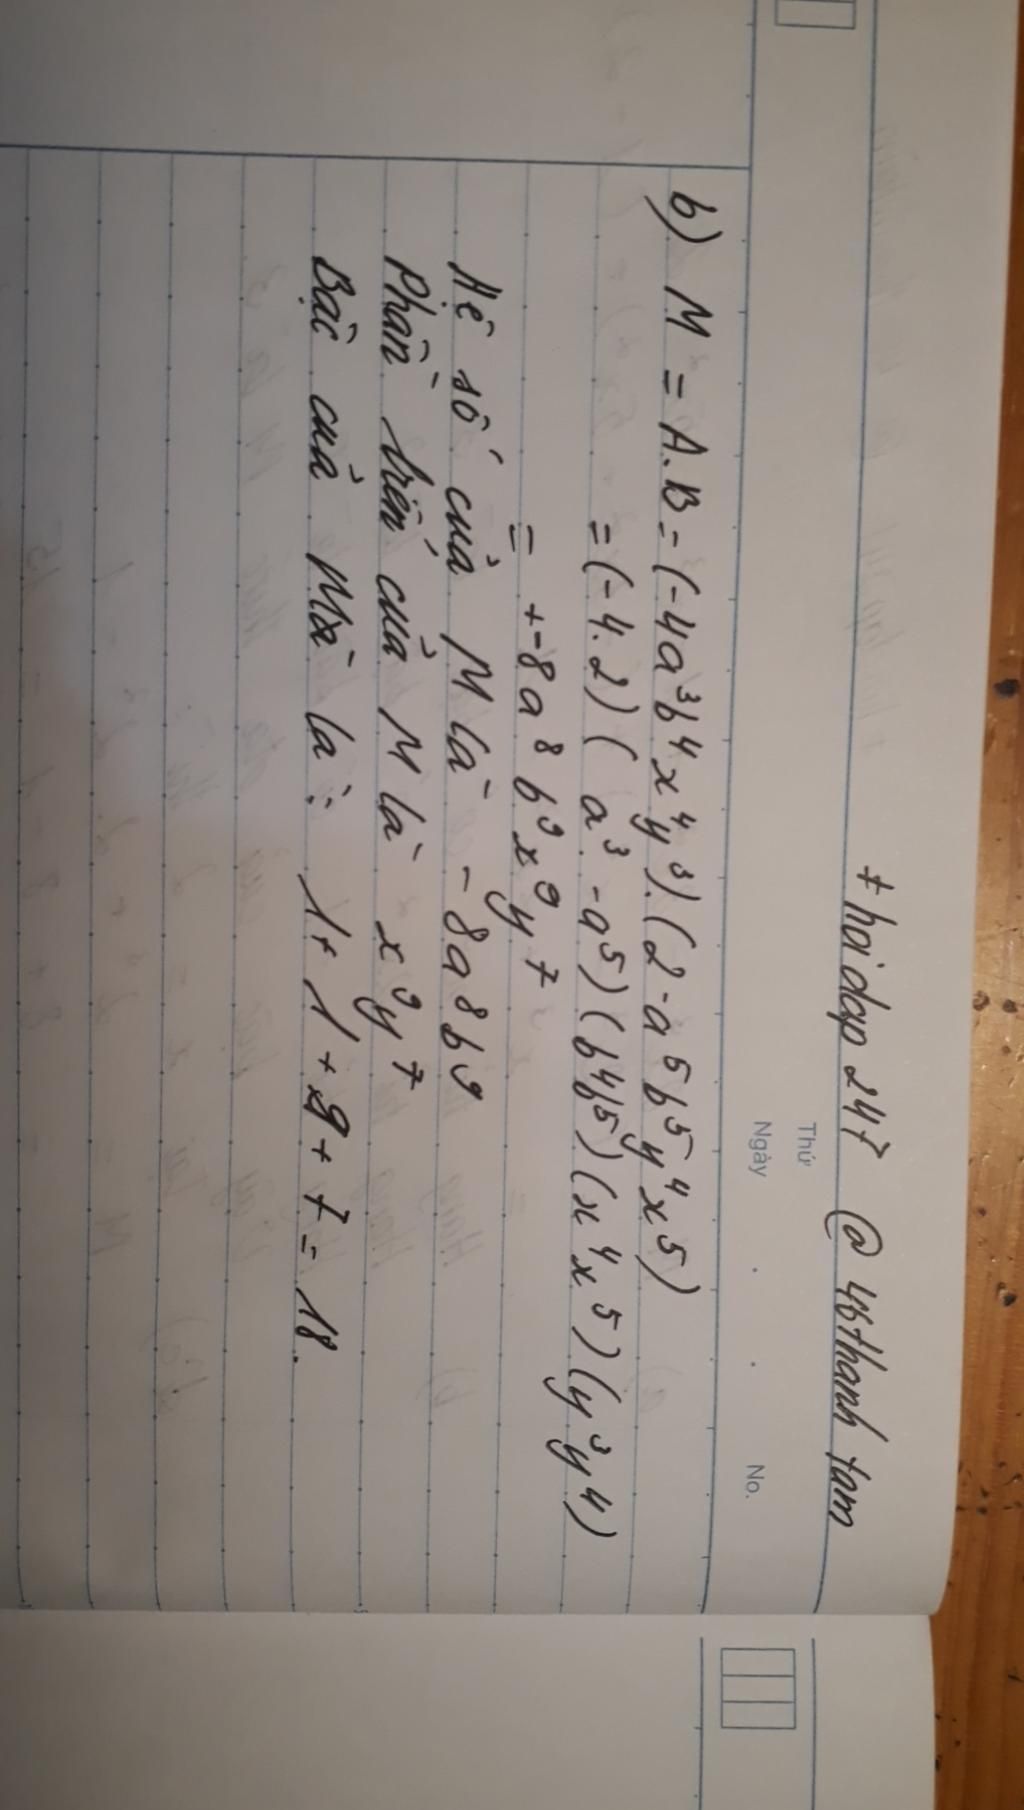 # hoidap 247 @ 46thanh tam
Thứ
Ngày . . No.
b) M = A.B = (-4a³b⁴x⁴y³).(2-a⁵b⁵y⁴x⁵)
= (-4.2)(a³-a⁵)(b⁴b⁵)(x⁴x⁵)(y³y⁴)
= +-8a⁸b⁹x⁹y⁷
Hệ số của M là -8a⁸b⁹
Phần biến của M là x⁹y⁷
Bậc của M là : 1+1+9+7=18.